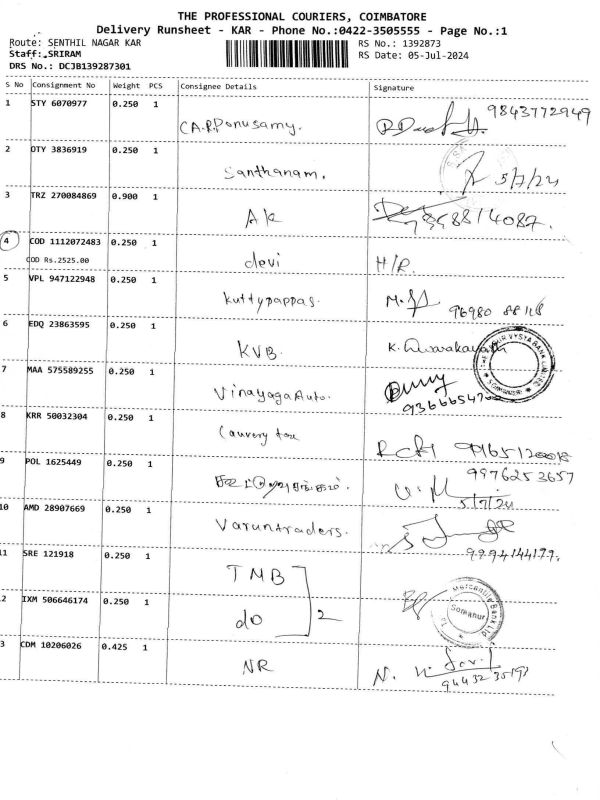 THE PROFESSIONAL COURIERS, COIMBATORE
Delivery Runsheet - KAR - Phone No.:0422-3505555 - Page No.:1
Route: SENTHIL NAGAR KAR RS No.: 1392873
Staff: SRIRAM RS Date: 05-Jul-2024
DRS No.: DCJB139287301
S No Consignment No Weight PCS Consignee Details Signature
1 STY 6070977 0.250 1 C.A.R.Ponusamy. 9843772949
2 OTY 3836919 0.250 1 Santhanam. 5/7/24
3 TRZ 270084869 0.900 1 AK
4 COD 1112072483 0.250 1 devi H/R.
COD Rs.2525.00
5 VPL 947122948 0.250 1 Kuttypappas.
6 EDQ 23863595 0.250 1 KVB.
7 MAA 575589255 0.250 1 Vinayaga Auto.
8 KRR 50032304 0.250 1 Cauvery tex
9 POL 1625449 0.250 1 9976253657
5/7/24
10 AMD 28907669 0.250 1 Varuntraders.
11 SRE 121918 0.250 1 TMB
2 IXM 506646174 0.250 1 do 2 Mercantile Bank Ltd Somanur
3 CDM 10206026 0.425 1 NR